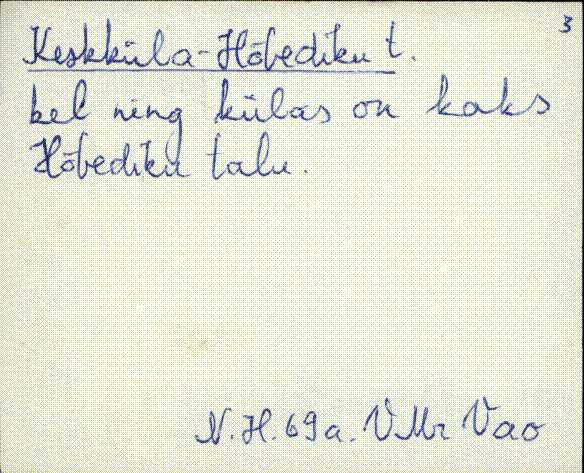 3
Keskküla-Hõbediku t.
kel ning külas on kaks
Hõbediku talu.
N. H. 69 a. VMr Vao